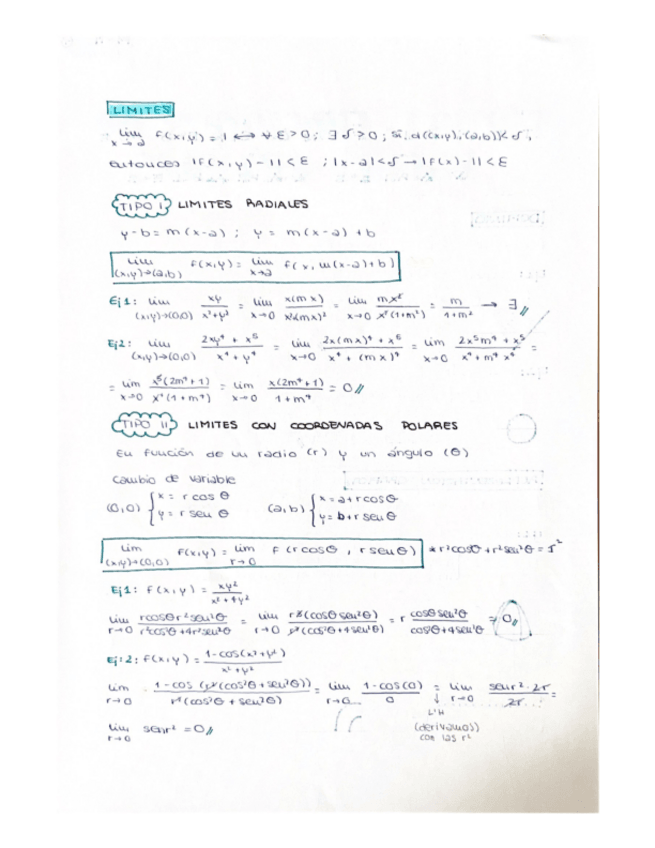 LIMITES
lim x→a f(x,y) = l ⟷ ∀ε>0; ∃δ>0; si d((x,y),(a,b))<δ,
entonces |f(x,y)-l|<ε ; |x-a|<δ → |f(x)-l|<ε
TIPO I LIMITES RADIALES
y-b=m(x-a) ; y = m(x-a)+b
lim (x,y)→(a,b) f(x,y) = lim x→a f(x, m(x-a)+b)
Ej1: lim (x,y)→(0,0) xy/x²+y² = lim x→0 x(mx)/x²(mx)² = lim x→0 mx²/x²(1+m²) = m/1+m² → ∃
Ej2: lim (x,y)→(0,0) 2xy⁴+x⁵/x⁴+y⁴ = lim x→0 2x(mx)⁴+x⁵/x⁴+(mx)⁴ = lim x→0 2x⁵m⁴+x⁵/x⁴+m⁴x⁴ =
= lim x→0 x⁵(2m⁴+1)/x⁴(1+m⁴) = lim x→0 x(2m⁴+1)/1+m⁴ = 0//
TIPO II LIMITES CON COORDENADAS POLARES
En función de un radio (r) y un ángulo (θ)
Cambio de variable
(0,0) { x = r cos θ (a,b) { x = a+r cos θ
y = r sen θ y = b+r sen θ
lim (x,y)→(0,0) f(x,y) = lim r→0 f(r cos θ, r sen θ) * r²cosθ+r²sen²θ = r²
Ej1: f(x,y) = xy²/x²+4y²
lim r→0 rcosθr²sen²θ/r²cosθ+4r²sen²θ = lim r→0 r³(cosθsen²θ)/r²(cos²θ+4sen²θ) = r cosθsen²θ/cos²θ+4sen²θ = 0//
Ej:2: f(x,y) = 1-cos(x²+y²)/x²+y²
lim r→0 1-cos(r²(cos²θ+sen²θ))/r²(cos²θ+sen²θ) = lim r→0 1-cos(0)/0 = lim r→0 senr²·2r/2r =
L'H
lim r→0 senr² = 0// (derivamos)
con las r²